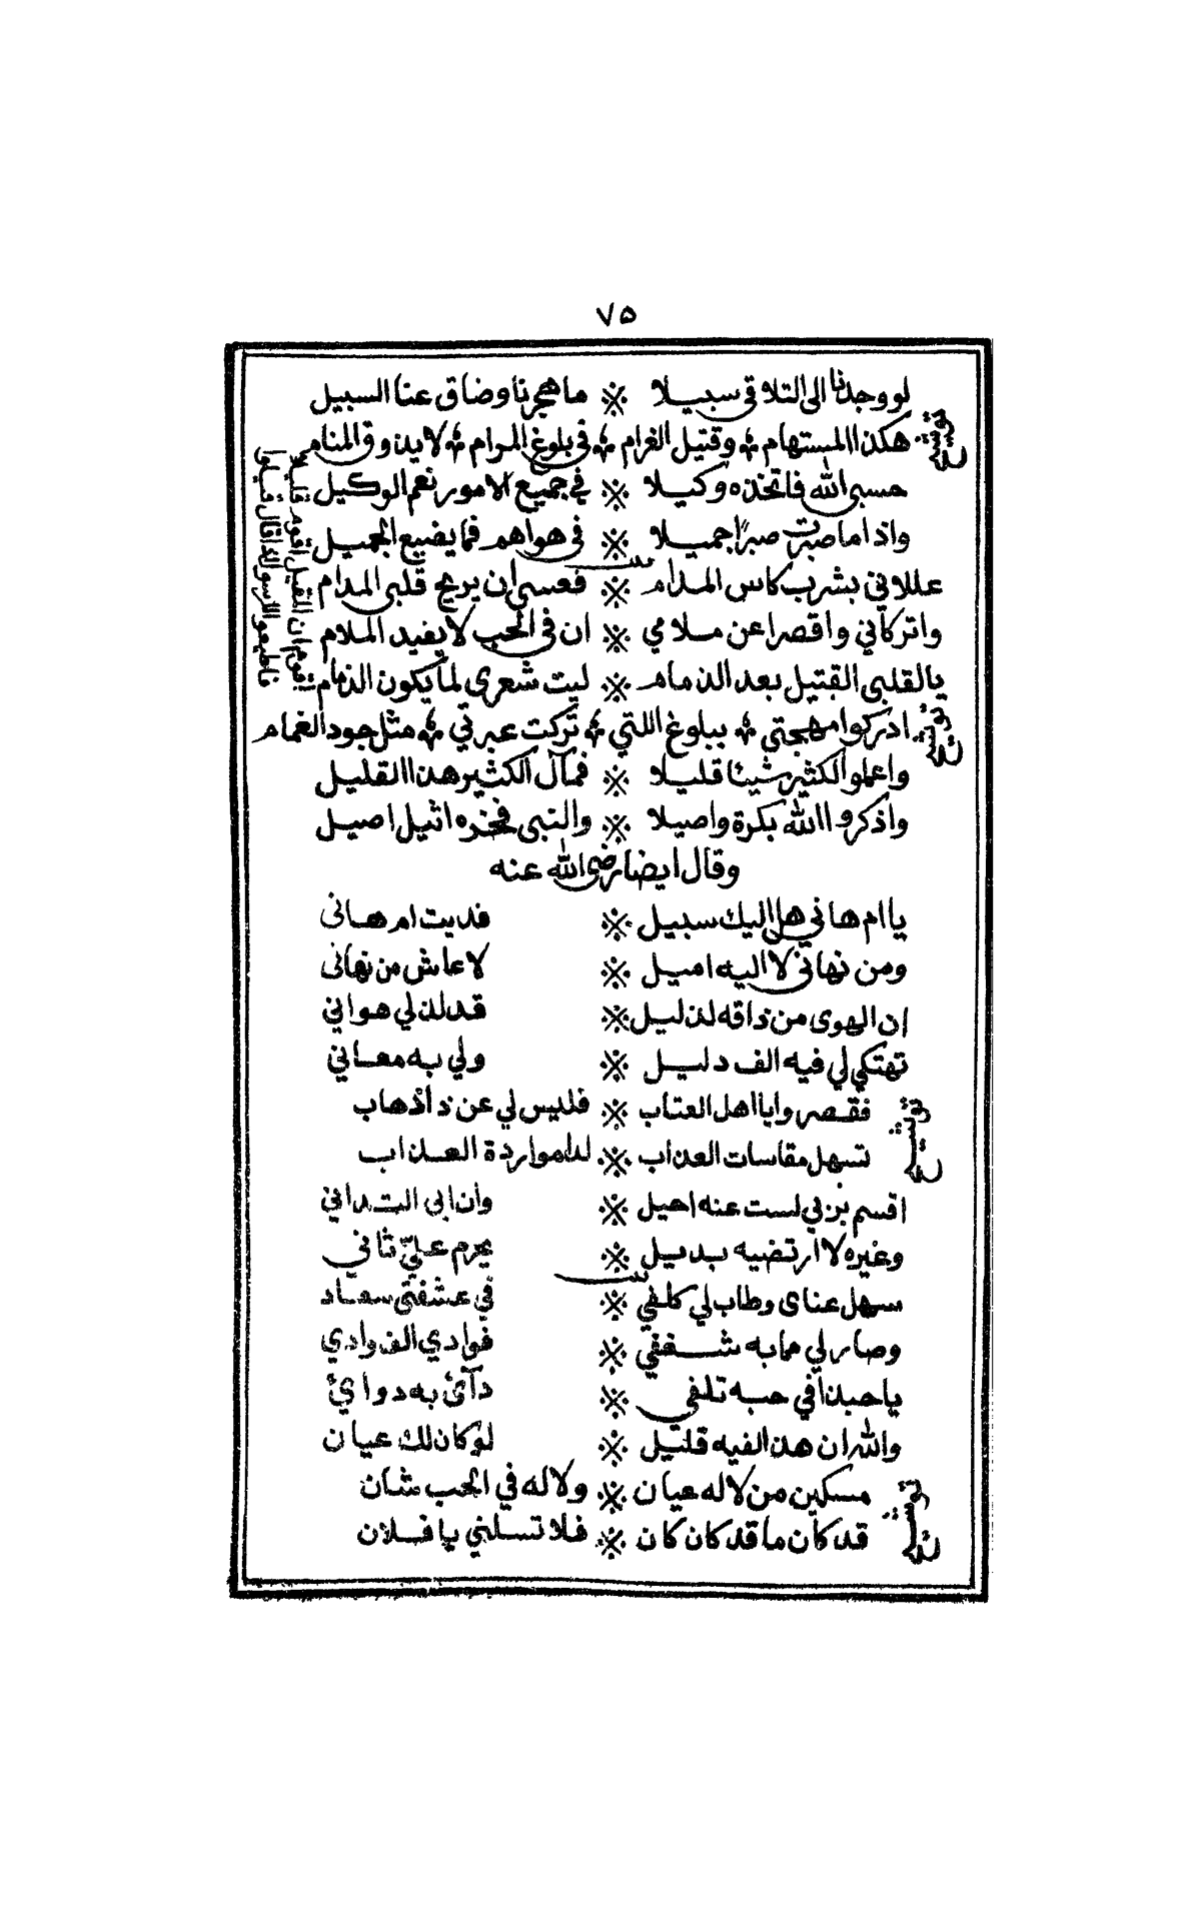 ٧٥
لو وجدنا الى التلاقي سبيلا ※ ما هجرنا وضاق عنا السبيل
توشيح
هكذا المستهام ؞ وقتيل الغرام ؞ في بلوغ المرام ؞ لا يذوق المنام
حسبي الله فاتخذه وكيلا ※ في جميع الامور نعم الوكيل
واذا ما صبرت صبرًا جميلا ※ في هواهم فما يضيع الجميل
بيت
عللاني بشرب كاس المدام ※ فعسى ان يريح قلبي المدام
واتركاني واقصرا عن ملامي ※ ان في الحب لا يفيد الملام
يا لقلبي القتيل بعد الذمام ※ ليت شعرى لما يكون الذمام
توشيح
ادركوا مهجتي ؞ ببلوغ اللتي ؞ تركت عبرتي ؞ مثل جود الغمام
واعملوا الكثير شيئا قليلا ※ فمآل الكثير هذا القليل
واذكروا الله بكرة واصيلا ※ والنبى فخذه اثيل اصيل
وقال ايضا رضى الله عنه
يا ام هاني هل اليك سبيل ※ فديت ام هانى
ومن نهاني لا اليه اميل ※ لا عاش من نهانى
ان الهوى من ذاقه لذ ليل ※ قد لذ لي هواني
تهتكي لي فيه الف دليل ※ ولي به معاني
توشيح
فقصروا يا اهل العتاب ※ فليس لي عن ذا ذهاب
تسهل مقاسات العذاب ※ لذا مواردة العذاب
اقسم بزني لست عنه احيل ※ وان ابى التداني
وغيره لا ارتضيه بديل ※ يحرم عليّ ثاني
بيت
سهل عناى وطاب لي كلفي ※ في عشقتي سعاد
وصار لي مما به شغفي ※ فوادي الف وادي
يا حبذا في حبه تلفي ※ دآئ به دوائ
والله ان هذا لفيه قليل ※ لو كان لك عيان
توشيح
مسكين من لا له عيان ※ ولا له في الحب شان
قد كان ما قد كان كان ※ فلا تسلني يا فلان